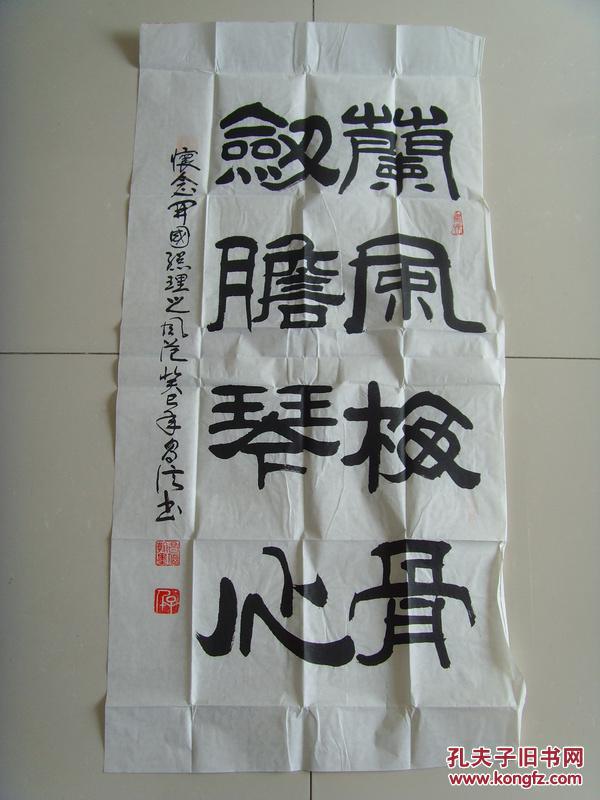 蘭風梅骨
劔膽琴心
懷念開國總理之風范癸巳年昌信书
孔夫子旧书网
www.kongfz.com